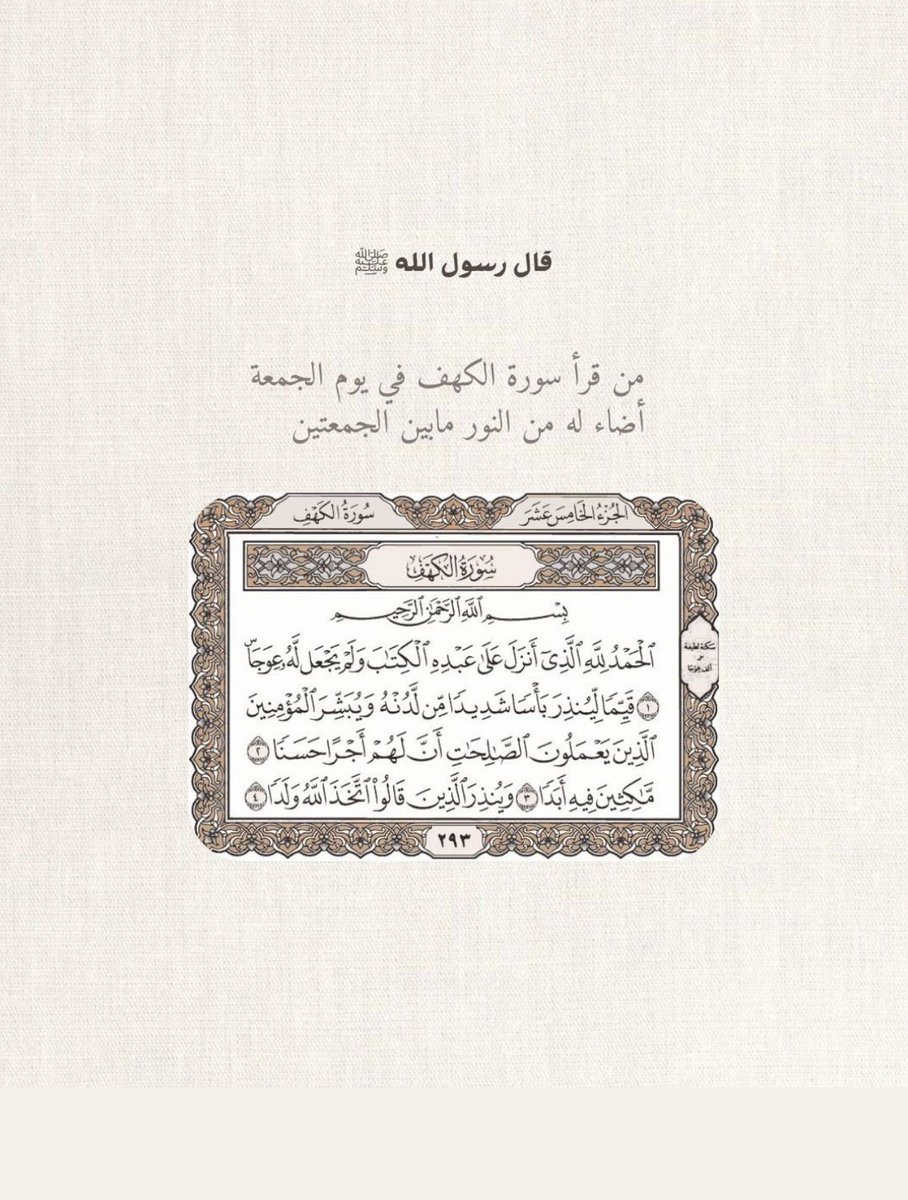 قال رسول الله ﷺ
من قرأ سورة الكهف في يوم الجمعة
أضاء له من النور مابين الجمعتين
الجُزْءُ الخَامِسَ عَشَرَ
سُورَةُ الكَهْفِ
سُورَةُ الكَهْفِ
بِسْمِ ٱللَّهِ ٱلرَّحْمَٰنِ ٱلرَّحِيمِ
ٱلْحَمْدُ لِلَّهِ ٱلَّذِىٓ أَنزَلَ عَلَىٰ عَبْدِهِ ٱلْكِتَٰبَ وَلَمْ يَجْعَل لَّهُۥ عِوَجَاۜ
١ قَيِّمًا لِّيُنذِرَ بَأْسًا شَدِيدًا مِّن لَّدُنْهُ وَيُبَشِّرَ ٱلْمُؤْمِنِينَ
ٱلَّذِينَ يَعْمَلُونَ ٱلصَّٰلِحَٰتِ أَنَّ لَهُمْ أَجْرًا حَسَنًا ٢
مَّٰكِثِينَ فِيهِ أَبَدًا ٣ وَيُنذِرَ ٱلَّذِينَ قَالُوا۟ ٱتَّخَذَ ٱللَّهُ وَلَدًا ٤
سكتة لطيفة
على
ألف عوجا
٢٩٣